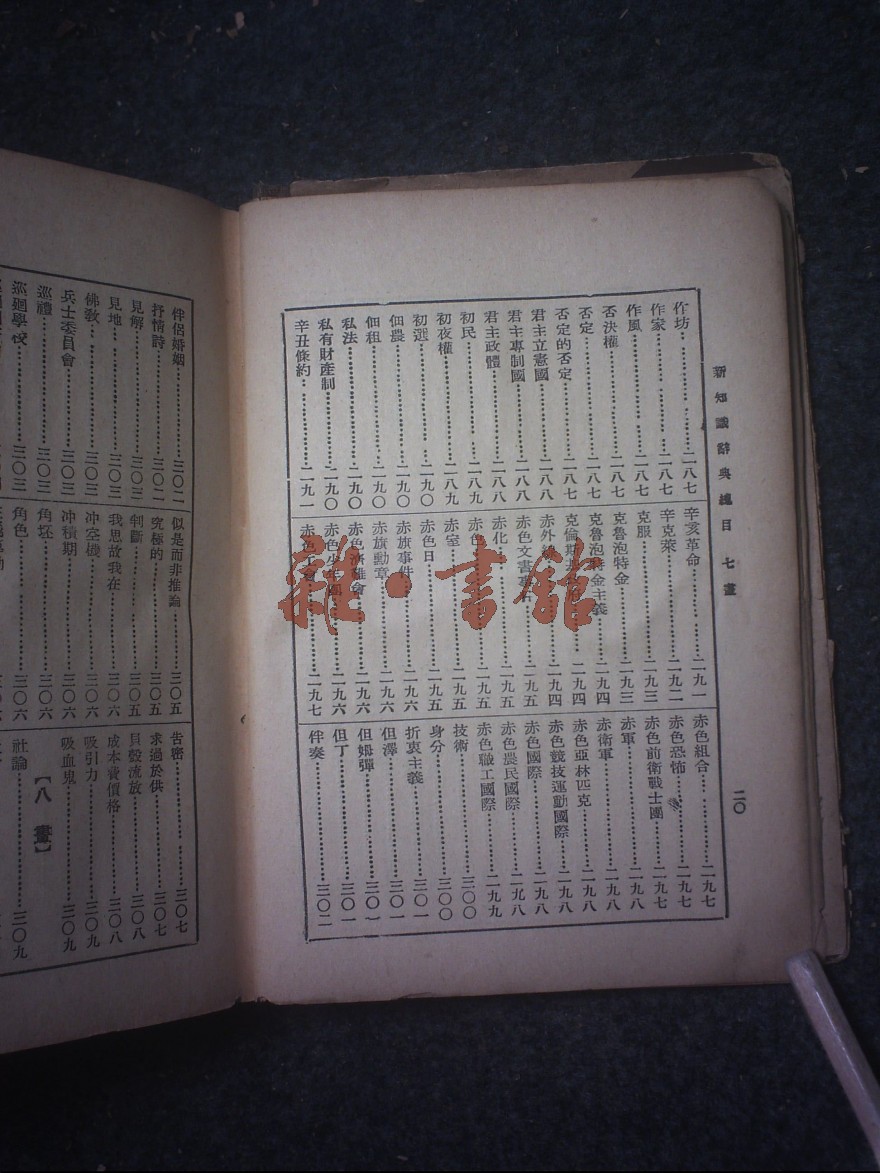 新知識辭典總目 七畫
二〇
作坊…………二八七
作家…………二八七
作風…………二八七
否決權…………二八七
否定…………二八七
否定的否定…………二八七
君主立憲國…………二八八
君主專制國…………二八八
君主政體…………二八八
初民…………二八九
初夜權…………二八九
初選…………二九〇
佃農…………二九〇
佃租…………二九〇
私法…………二九〇
私有財產制…………二九〇
辛丑條約…………二九一
辛亥革命…………二九一
辛克萊…………二九二
克服…………二九三
克魯泡特金…………二九三
克魯泡特金主義…………二九四
克倫斯基…………二九四
赤外線…………二九四
赤色文書…………二九五
赤化…………二九五
赤色…………二九五
赤室…………二九五
赤色日…………二九五
赤旗事件…………二九六
赤旗勳章…………二九六
赤色濟難會…………二九六
赤色少年團…………二九六
赤色工會…………二九七
赤色組合…………二九七
赤色恐怖…………二九七
赤色前衛戰士團…………二九七
赤軍…………二九八
赤衛軍…………二九八
赤色亞林匹克…………二九八
赤色競技運動國際…………二九八
赤色國際…………二九八
赤色農民國際…………二九八
赤色職工國際…………二九九
技術…………三〇〇
身分…………三〇〇
折衷主義…………三〇一
但澤…………三〇一
但姆彈…………三〇一
但丁…………三〇一
伴奏…………三〇二
伴侶婚姻…………三〇二
抒情詩…………三〇二
見解…………三〇三
見地…………三〇三
佛教…………三〇三
兵士委員會…………三〇三
巡禮…………三〇三
巡廻學校…………三〇三
似是而非推論…………三〇五
究極的…………三〇五
判斷…………三〇五
我思故我在…………三〇六
冲空機…………三〇六
冲積期…………三〇六
角坯…………三〇六
角色…………三〇六
告密…………三〇七
求過於供…………三〇七
貝殼流放…………三〇八
成本費價格…………三〇八
吸引力…………三〇九
吸血鬼…………三〇九
【八畫】
社論…………三〇九
雜·書館